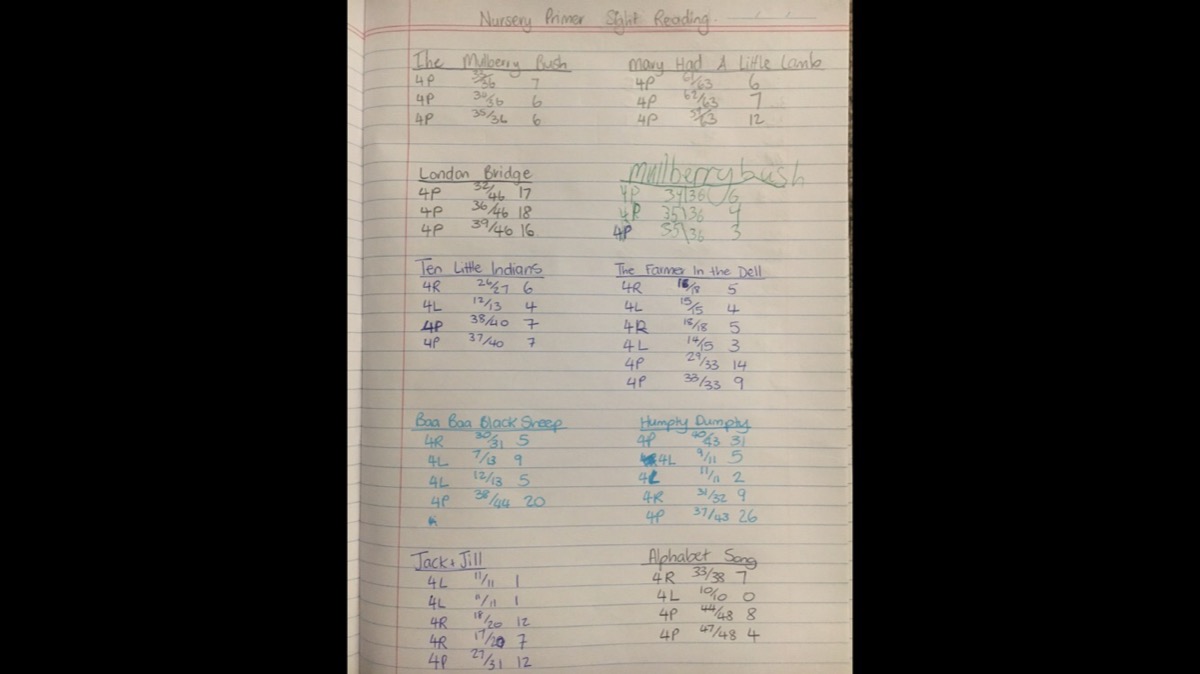 Nursery Primer Sight Reading.
The Mulberry Bush
4P 35/36 7
4P 36/36 6
4P 35/36 6
Mary Had A Little Lamb
4P 61/63 6
4P 62/63 7
4P 12
London Bridge
4P 32/46 17
4P 36/46 18
4P 39/46 16
Mullberry bush
4P 34\36 6
4R 35\36 4
4P 35\36 3
Ten Little Indians
4R 26/27 6
4L 12/13 4
4P 38/40 7
4P 37/40 7
The Farmer In the Dell
4R 5
4L 15/15 4
4R 18/18 5
4L 14/15 3
4P 29/33 14
4P 33/33 9
Baa Baa Black Sheep
4R 30/31 5
4L 7/13 9
4L 12/13 5
4P 38/44 20
Humpty Dumpty
4P 40/43 31
4L 9/11 5
4L 11/11 2
4R 31/32 9
4P 37/43 26
Jack + Jill
4L 11/11 1
4L 11/11 1
4R 18/20 12
4R 17/20 7
4P 27/31 12
Alphabet Song
4R 33/38 7
4L 10/10 0
4P 44/48 8
4P 47/48 4